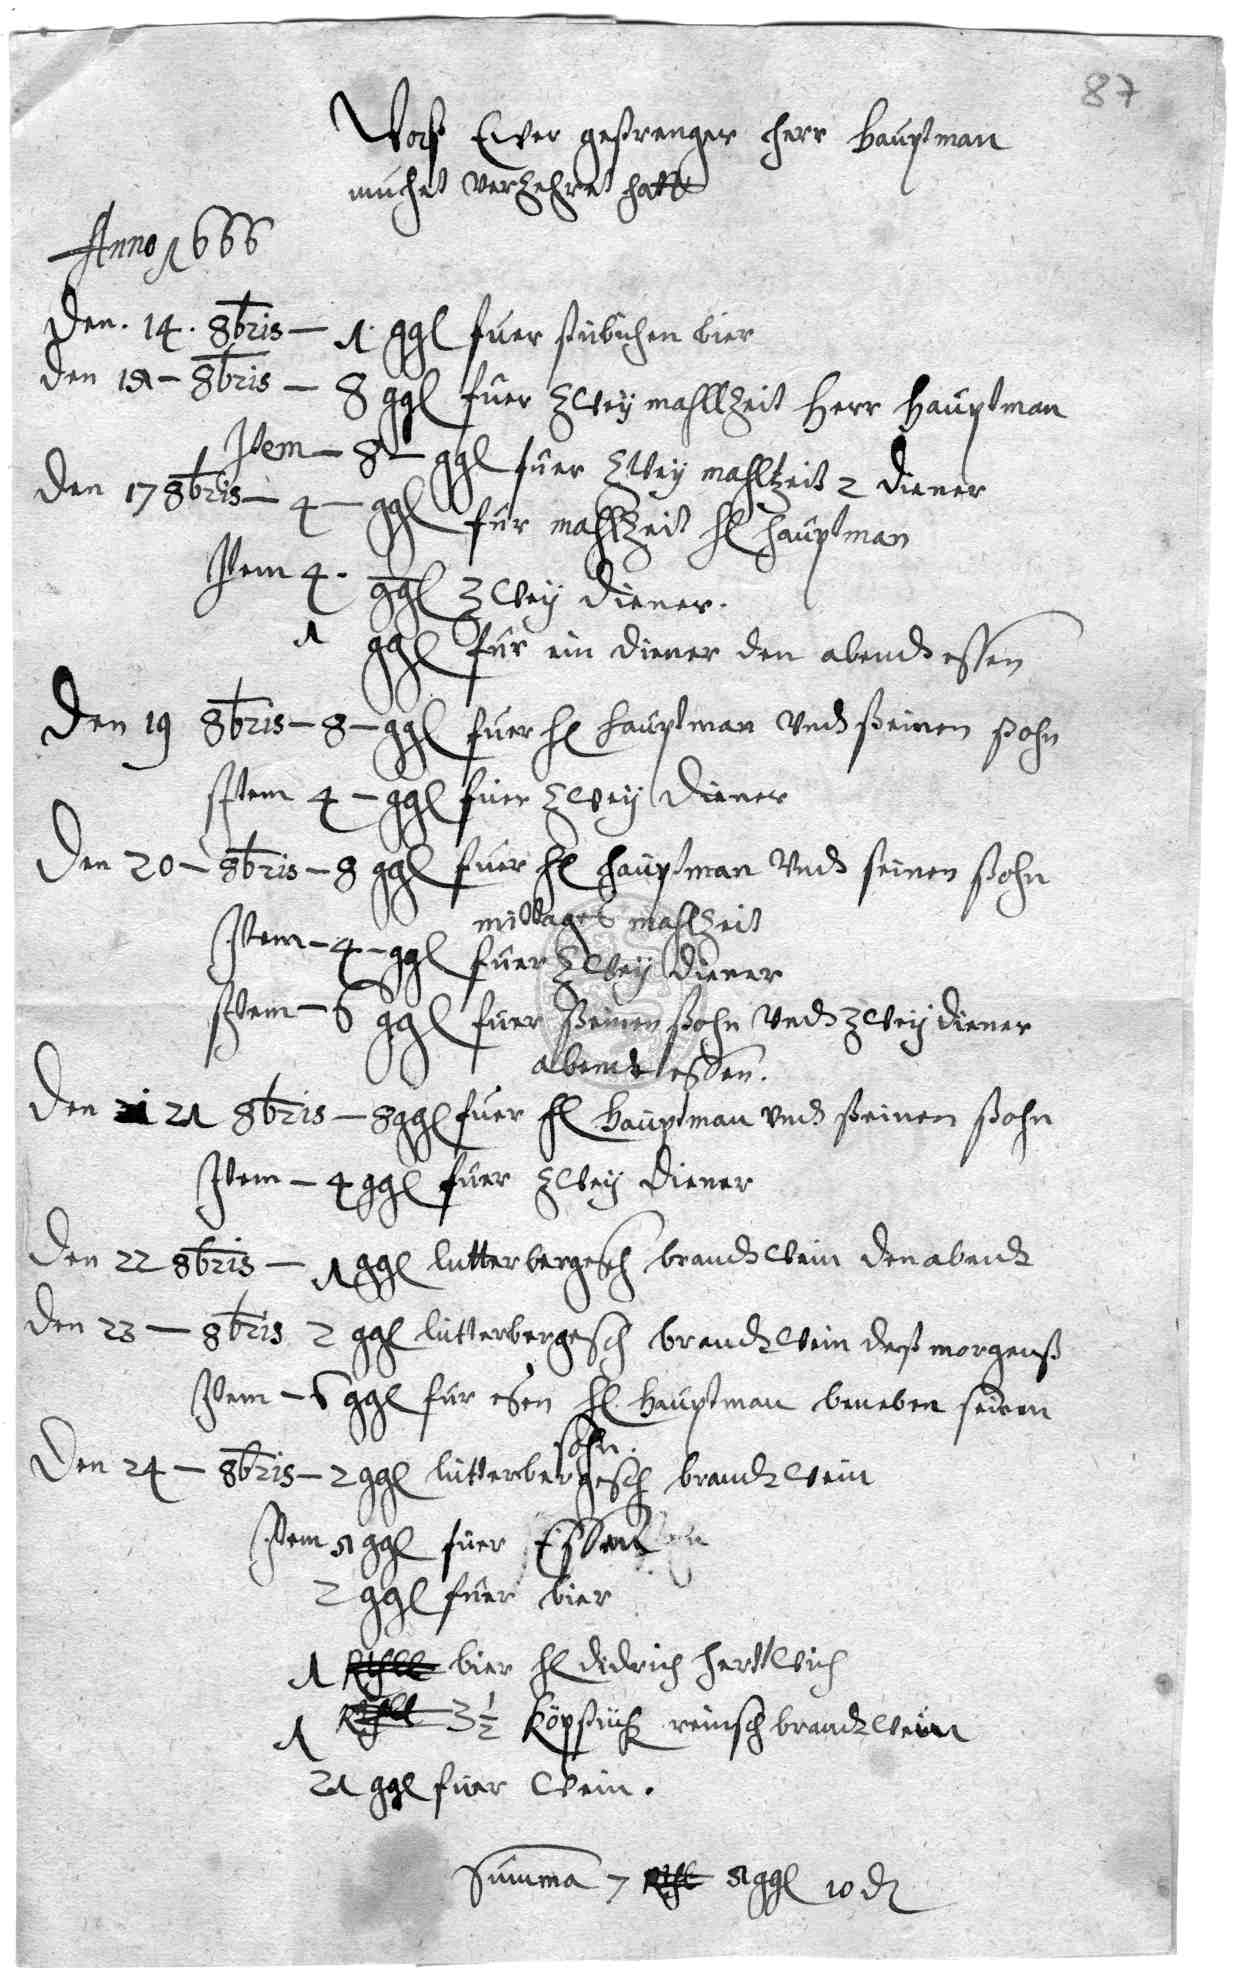 87
Waß Ewer gestrenger Herr Hauptman
verzehret hatt
Anno 1666
Den. 14. 8bris — 1. ggl fuer stübichen bier
den 8bris — 8 ggl fuer zwey mahllzeit Herr Hauptman
Item — 8 — ggl fuer zwey mahltzeit 2 diener
Den 17 8bris — 4 — ggl für mahlzeit hl hauptman
Item 4. ggl zwey diener.
1 ggl für ein diener den abendt essen
Den 19 8bris — 8 — ggl fuer hl hauptman Undt seinen sohn
Item 4 — ggl fuer zwey diener
Den 20 — 8bris — 8 ggl fuer hl hauptman Undt seinen sohn
mittages mahlzeit
Item — 4 — ggl fuer zwey diener
Item — 6 ggl fuer seinen sohn Undt zwey diener
abendt essen.
Den 21 8bris — 8 ggl fuer hl Hauptman Undt seinen sohn
Item — 4 ggl fuer zwey diener
Den 22 8bris — 1 ggl lutterbergesch brandtwein den abendt
Den 23 — 8bris 2 ggl lutterbergesch brandtwein deß morgenß
Item — 6 ggl fur esen hl Hauptman beneben seinen
sohn.
Den 24 — 8bris — 2 ggl lutterbergesch brandtwein
Item ggl fuer Essen
2 ggl fuer bier
1 Rthll bier hl didrich hertwich
1 Rthll 3½ köpstück reinsch brandtwein
21 ggl fuer wein.
Summa 7 Rthl ggl 10 d